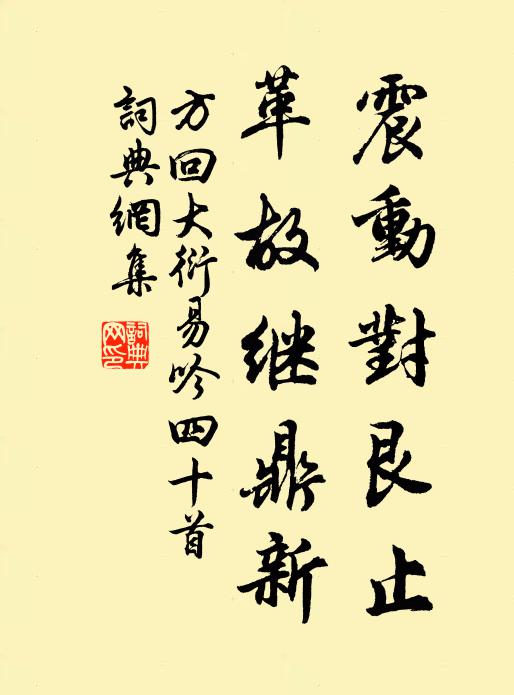 震動對艮止
革故继鼎新
方回大衍易吟四十首
詞典網集
詞典
网印